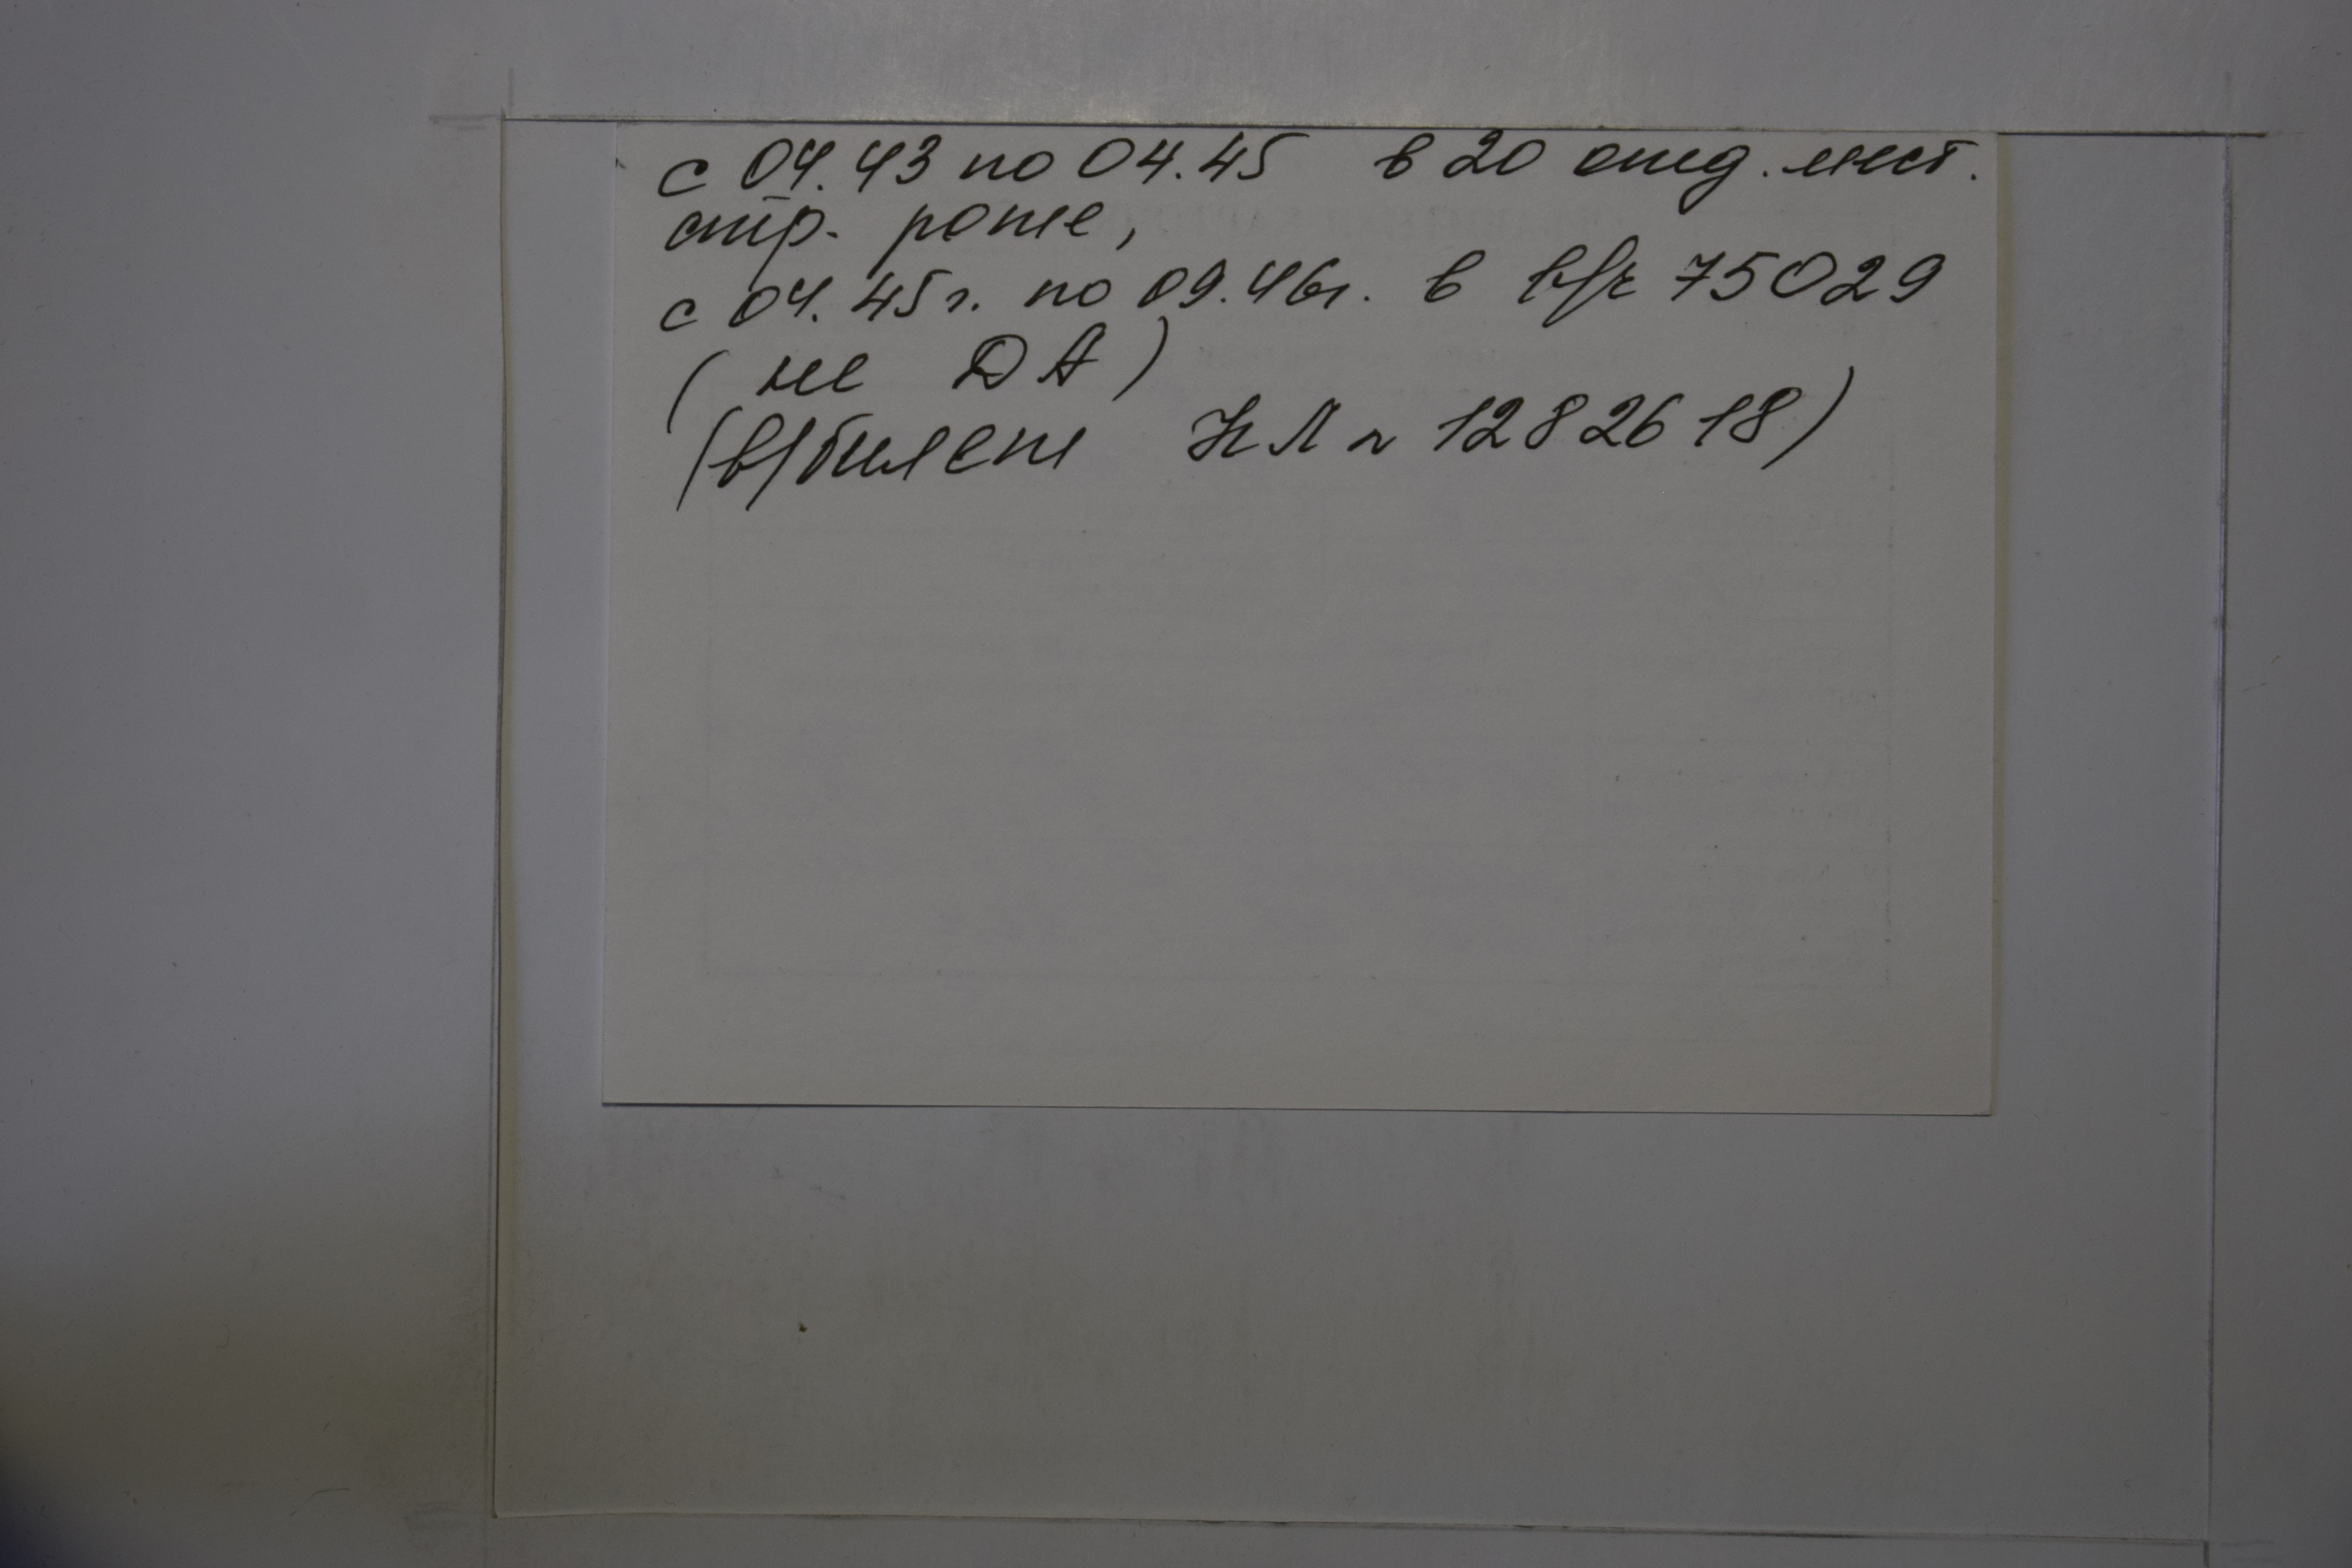 с 04.43 по 04.45 в 20 отд. мест.
стр. роте,
с 04.45 г. по 09.46г. в в/ч 75029
(не ДА)
(в/билет НЛ № 1282618)